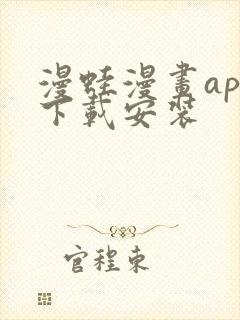 漫蛙漫畫ap
下載安裝
官程東